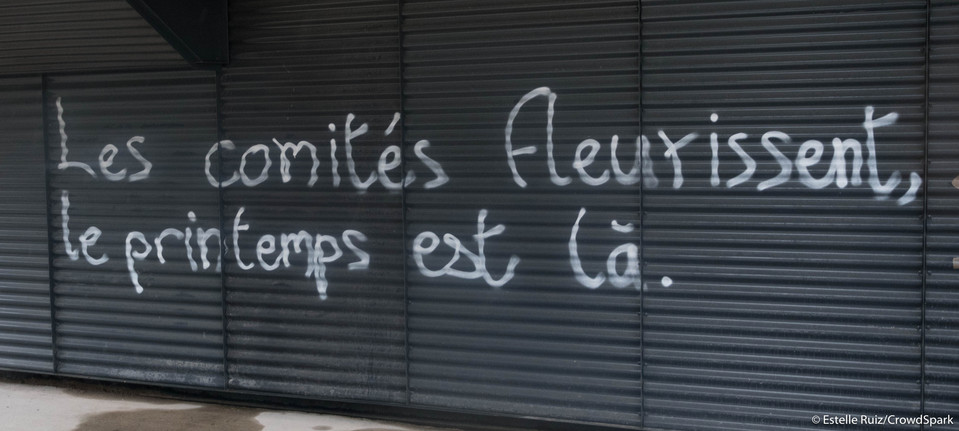 Les comités fleurissent,
le printemps est là.
© Estelle Ruiz/CrowdSpark